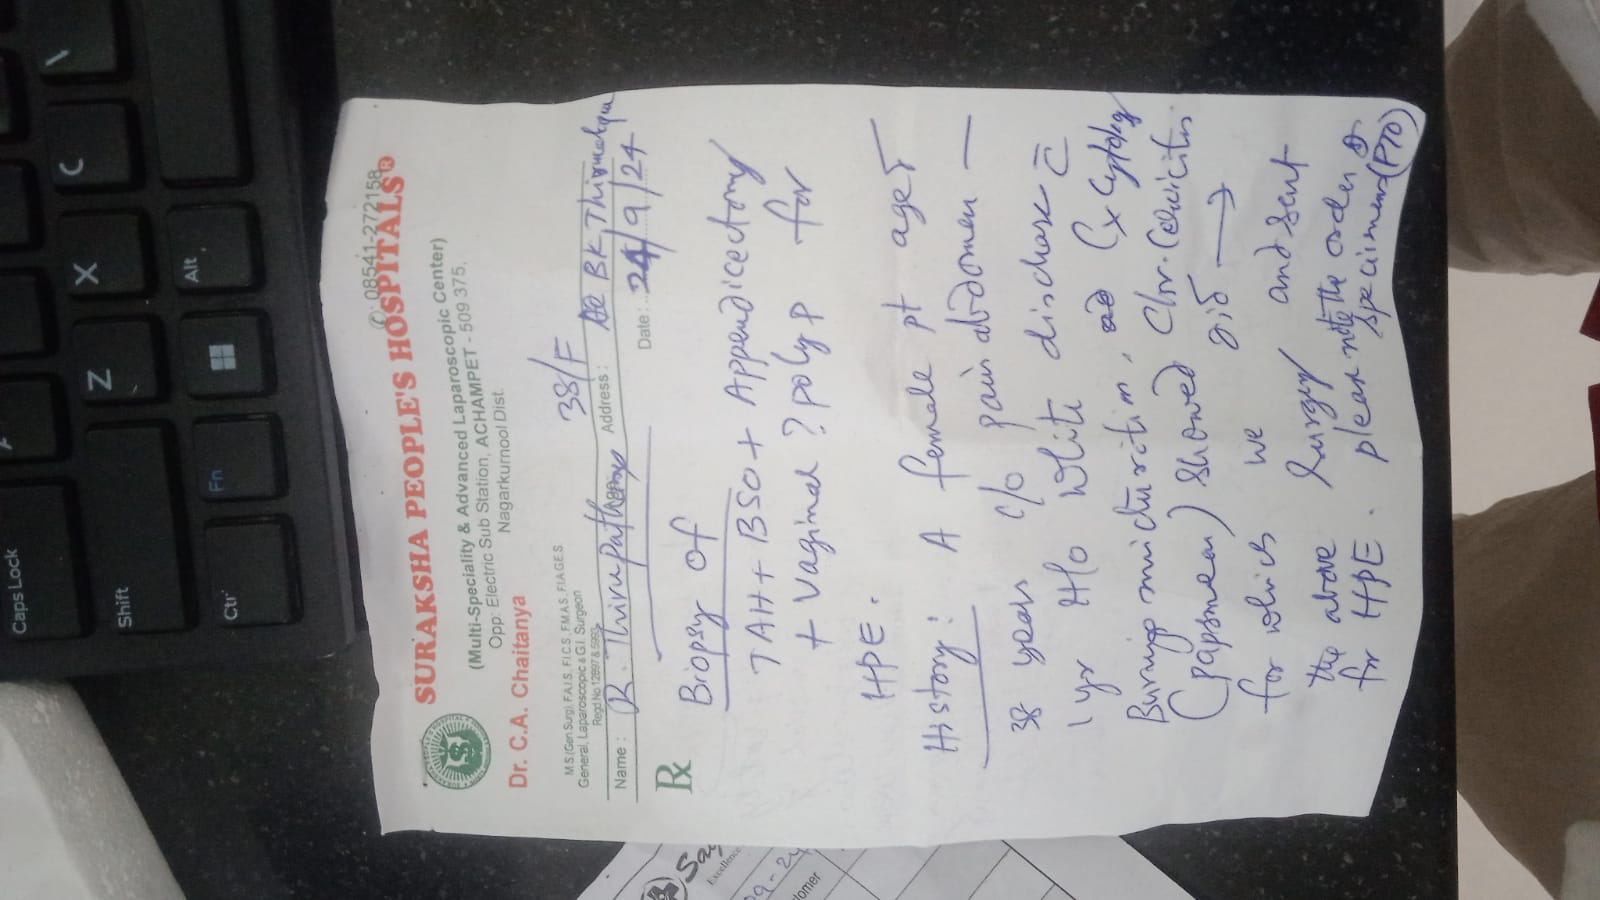 ✆: 08541-272158
SURAKSHA PEOPLE'S HOSPITALS®
(Multi-Speciality & Advanced Laparoscopic Center)
Opp: Electric Sub Station, ACHAMPET - 509 375.
Nagarkurnool Dist.
Dr. C.A. Chaitanya
M.S (Gen.Surg), F.A.I.S, F.I.C.S, F.M.A.S, F.I.AGES
General, Laparoscopic & G.I. Surgeon
38/F
Name: R. Address: BK Thirumalapur
Rx Date: 24/9/24
Biopsy of
TAH + BSO + Appendicectomy
+ vaginal ? polyp for
HPE.
History: A female pt aged
38 years c/o pain abdomen —
1 yr H/o white discharge c̄
Burning micturition, Cx Cytology
(papsmear) showed Chr. Cervicitis
for which we did →
the above surgery and sent
for HPE. please note the order of
specimens (PTO)
Caps Lock
Shift
Z
X
C
\
Ctrl
Fn
Alt
Excellence